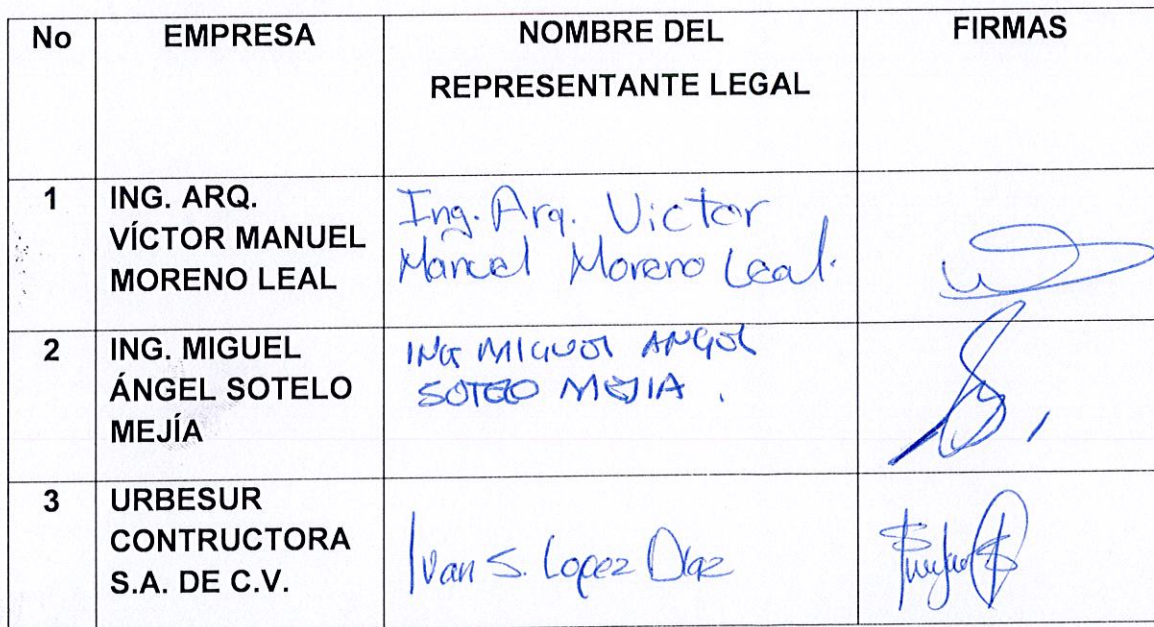 No EMPRESA NOMBRE DEL FIRMAS
REPRESENTANTE LEGAL
1 ING. ARQ.
VÍCTOR MANUEL
MORENO LEAL
Ing. Arq. Victor
Manuel Moreno Leal.
2 ING. MIGUEL
ÁNGEL SOTELO
MEJÍA
ING MIGUEL ANGEL
SOTELO MEJIA.
3 URBESUR
CONTRUCTORA
S.A. DE C.V.
Ivan S. Lopez Díaz